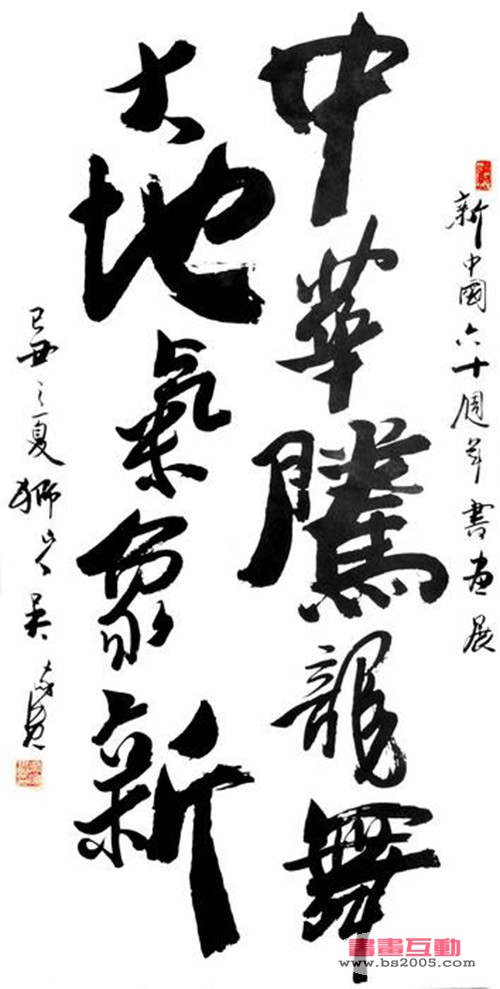 新中國六十週年書畫展
中華騰龍舞
大地氣象新
己丑之夏獅山人吳
書畫互動
www.bs2005.com